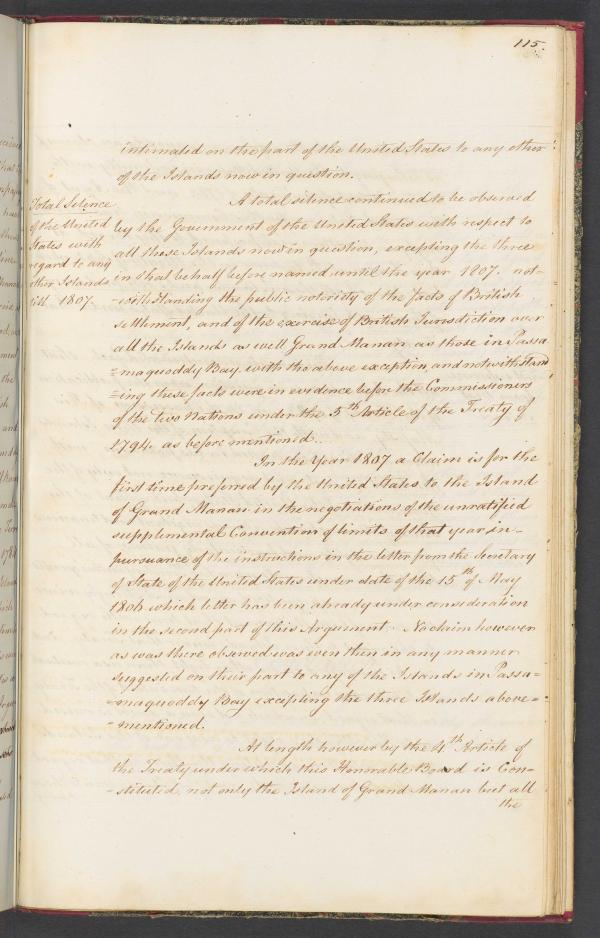 115.
intimated on the part of the United States to any other
of the Islands now in question.
Total Silence
of the United
States with
regard to any
other Islands
till 1807.
A total silence continued to be observed
by the Government of the United States with respect to
all these Islands now in question, excepting the three
in that behalf before named until the year 1807. not-
-withstanding the public notoriety of the facts of British
settlement, and of the exercise of British Jurisdiction over
all the Islands as well Grand Manan as those in Passa
=maquoddy Bay with the above exception, and notwithstand
=ing these facts were in evidence before the Commissioners
of the two Nations under the 5th Article of the Treaty of
1794 as before mentioned.
In the Year 1807 a Claim is for the
first time preferred by the United States to the Island
of Grand Manan in the negotiations of the unratified
supplemental Convention of limits of that year in-
pursuance of the instructions in the letter from the Secretary
of State of the United States under date of the 15th of May
1806 which letter has been already under consideration
in the second part of this Argument. No claim however
as was there observed was even then in any manner
suggested on their part to any of the Islands in Passa=
=maquoddy Bay excepting the three Islands above=
=mentioned.
At length however by the 4th Article of
the Treaty under which this Honorable Board is Con-
-stituted, not only the Island of Grand Manan but all
the